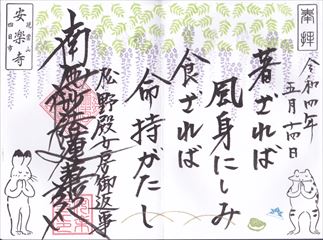 奉拝
令和四年
五月十四日
著ざれば
風身にしみ
食ざれば
命持がたし
松野殿女房御返事
南無妙法蓮華経
安楽寺
四日市